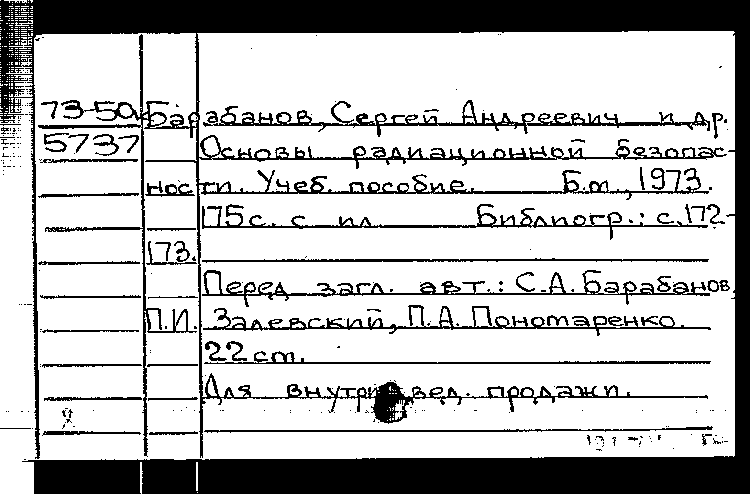 73-50 Барабанов, Сергей Андреевич и др.
5737 Основы радиационной безопас-
ности. Учеб. пособие. Б.м., 1973.
175 с. с ил Библиогр.: с. 172-
173.
Перед загл. авт.: С.А. Барабанов,
П.И. Залевский, П.А. Пономаренко.
22 cm.
Для внутривед. продажи.